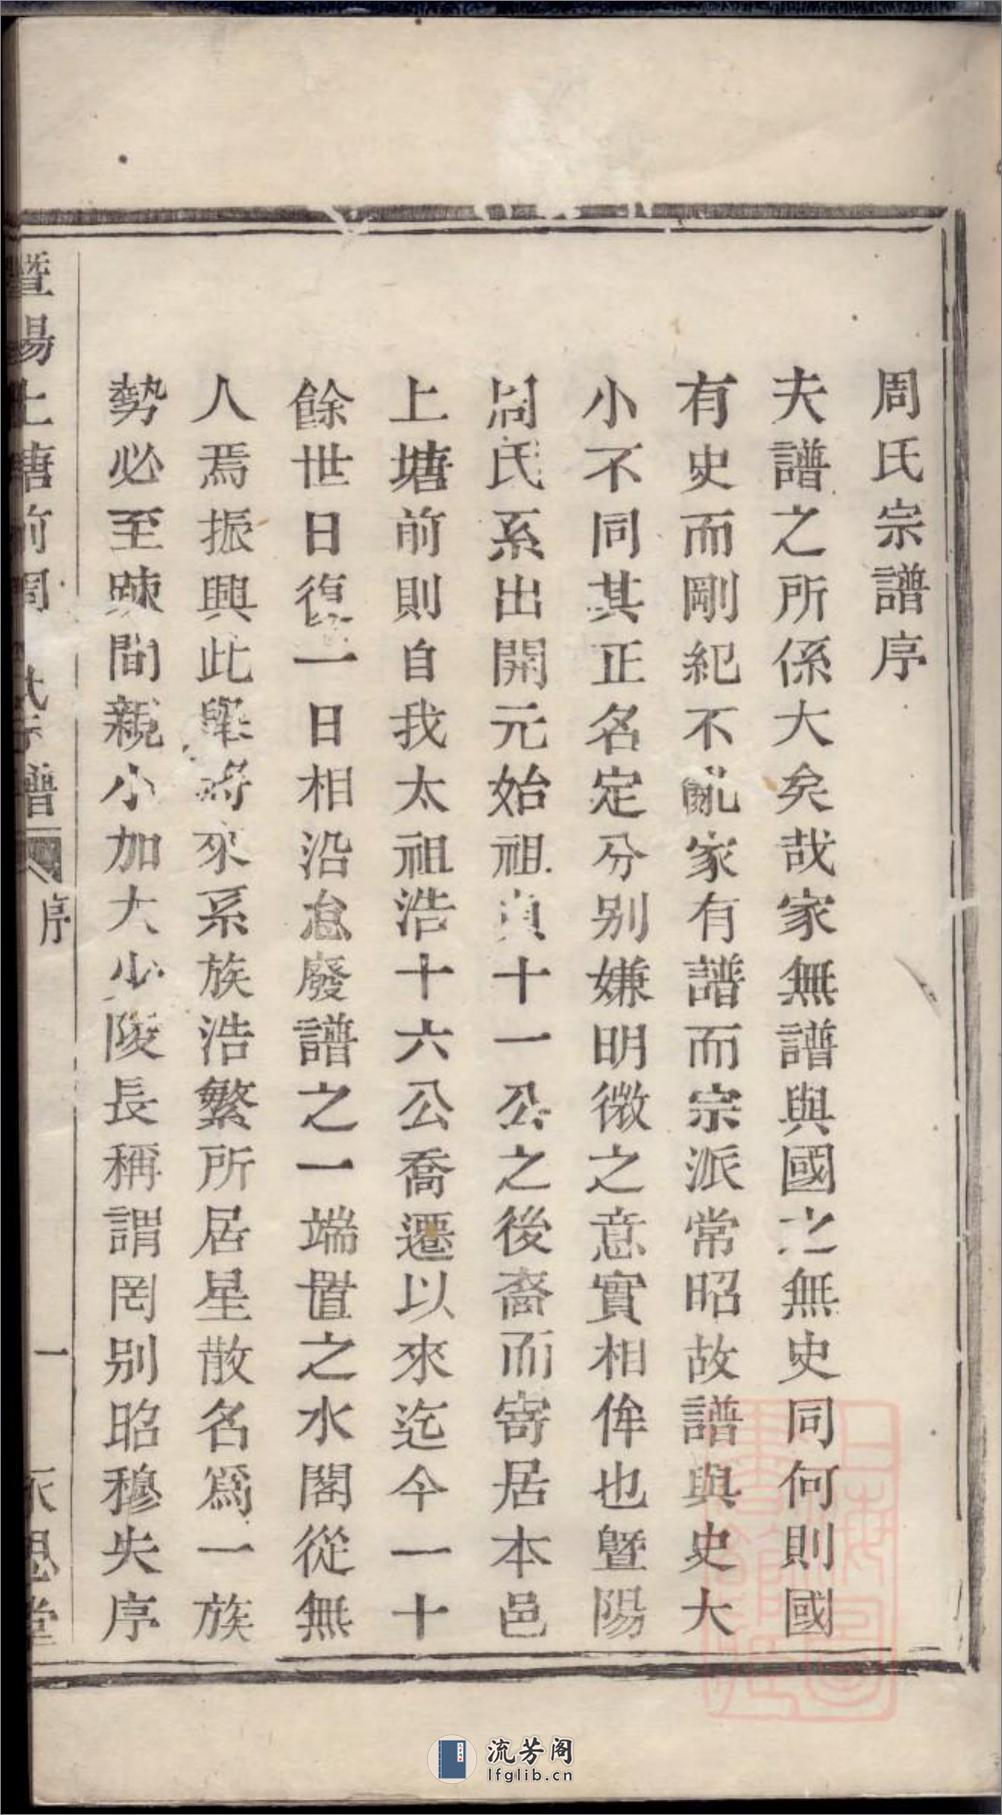 周氏宗譜序
夫譜之所係大矣哉家無譜與國之無史同何則國
有史而剛紀不亂家有譜而宗派常昭故譜與史大
小不同其正名定分別嫌明微之意實相侔也暨陽
周氏系出開元始祖貞十一公之後裔而寄居本邑
上塘前則自我太祖浩十六公喬遷以來迄今一十
餘世日復一日相沿怠廢譜之一端置之水閣從無
人焉振興此舉將來系族浩繁所居星散名爲一族
勢必至疎間親小加大少陵長稱謂罔別昭穆失序
暨陽上塘前周氏宗譜 序 一 永思堂
上海圖書館藏
流芳阁
lfglib.cn